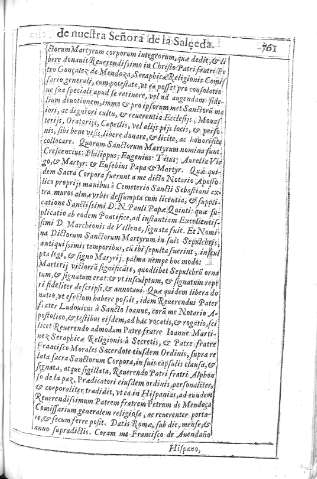 de nuestra Señora de la Salçeda. 761
ctorum Martyrum corporum integrorum, quæ dedit, & li
bere donauit Reuerendissimo in Christo Patri fratri Pe
tro Gonçalez de Mendoza, Seraphicæ Religionis Comiss
ario generali, cum potestate, vt ea possit pro consolatio
ne sua apud se retinere, vel ad augendam fide-
lium deuotionem, immo & pro ipsorum met Sanctorũ ma
iori, ac digniori cultu, & reuerentia Ecclesijs, Mona
sterijs, Oratorijs, Capellis, vel alijs pijs locis, & perso-
nis, sibi bene visis, libere donare, & licite, ac honorifice
collocare. Quorum Sanctorum Martyrum nomina sunt,
Crescentius: Philippus; Eugenius: Titus; Aurelia Vir
go, & Martyr: & Eusebius Papa & Martyr. Quæ qui-
dem Sacra Corpora fuerunt a me dicto Notario Aposto-
lico proprijs manibus è Cemeterio Sancti Sebastiani ex-
tra muros almæ vrbis dessumpta cum licentia, & suppli-
catione Sanctissimi D. N. Pauli Papæ Quinti: quæ su-
plicatio ab eodem Pontifice, ad instantiam Excellentiss-
simi D. Marchionis de Villena, signata fuit. Et Nomi-
na Dictorum Sanctorum Martyrum, in suis Sepulchris,
antiquissimis temporibus, cũ ibi sepulta fuerint, insculp
pta lego, & signo Martyrij, palma nempe hoc modo
Martirij victoriã significatis, quodlibet Sepulchrũ orna
tum, & signatum erat: & vt insculptum, & signatum repe
ri fideliter descripsi, & annotaui. Quæ quidem libera do
natio, vt effectum habere possit, idem Reuerendus Pater
frater Ludouicus à Sancto Ioanne, corã me Notario A-
postolico, & testibus eisdem, ad hæc vocatis, & rogatis, sci
licet Reuerendo admodum Patre fratre Ioanne Marti-
nez Seraphicæ Religionis à Secretis, & Patre fratre
Francisco Morales Sacerdote eiusdem Ordinis, supra re
lata sacra Sanctorum Corpora, in suis capsulis clausa, &
signata, atque sigillata, Reuerendo Patri fratri Alphon
so de la paz, Prædicatori eiusdem ordinis, personaliter,
& corporaliter tradidit, vt ea in Hispanias, ad eundem
Reuerendissimum Patrem fratrem Petrum de Mendoça
Comissarium generalem religiose, ac reuerenter porta-
re, & secum ferre possit. Datis Romæ, sub die, mense, &
anno supradictis. Coram me Francisco de Auendaño
Hispano,